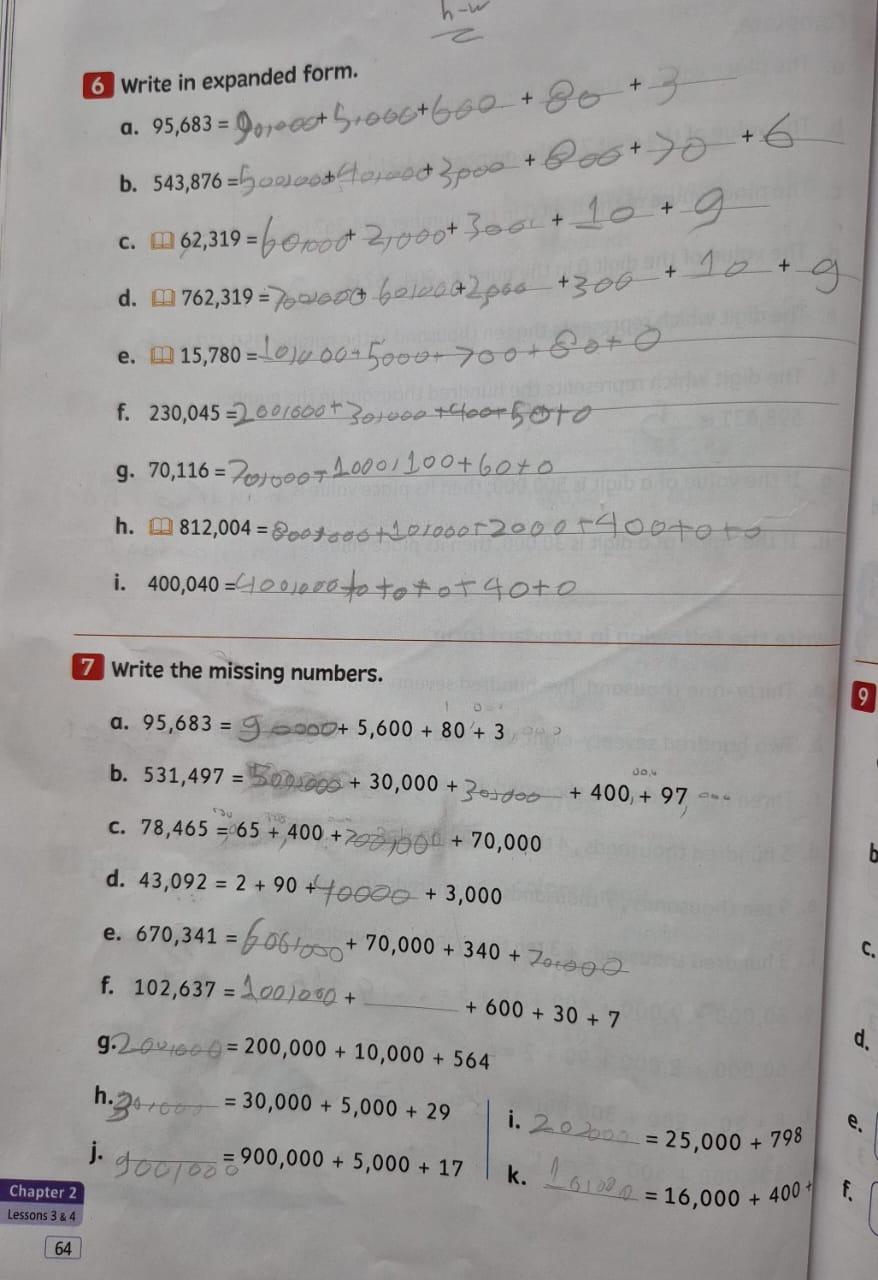 h-w
6 Write in expanded form.
a. 95,683 = 90,000+ 5,000+ 600 + 80 + 3
b. 543,876 = 500,000+ 40,000+ 3,000 + 800 + 70 + 6
c. 62,319 = 60,000+ 2,000+ 300 + 10 + 9
d. 762,319 = 700,000+ 60,000+ 2,000 + 300 + 10 + 9
e. 15,780 = 10,000+ 5000+ 700+ 80+ 0
f. 230,045 = 200,000+ 30,000 +400+50+0
g. 70,116 = 70,000+ 1000, 100+60+0
h. 812,004 = 800,000+10,000+2000+400+0+0
i. 400,040 = 400,000+0+0+0+40+0
7 Write the missing numbers.
a. 95,683 = 90000+ 5,600 + 80 + 3
b. 531,497 = 500,000 + 30,000 + 30,000 + 400 + 97
c. 78,465 = 65 + 400 + + 70,000
d. 43,092 = 2 + 90 + 40000 + 3,000
e. 670,341 = 606,000 + 70,000 + 340 + 70,000
f. 102,637 = 100,000 + ______ + 600 + 30 + 7
g. 200,000 = 200,000 + 10,000 + 564
h. 30,000 = 30,000 + 5,000 + 29
i. 202000 = 25,000 + 798
j. 900,000 = 900,000 + 5,000 + 17
k. 16,000 = 16,000 + 400 +
9
b
c.
d.
e.
f.
Chapter 2
Lessons 3 & 4
64